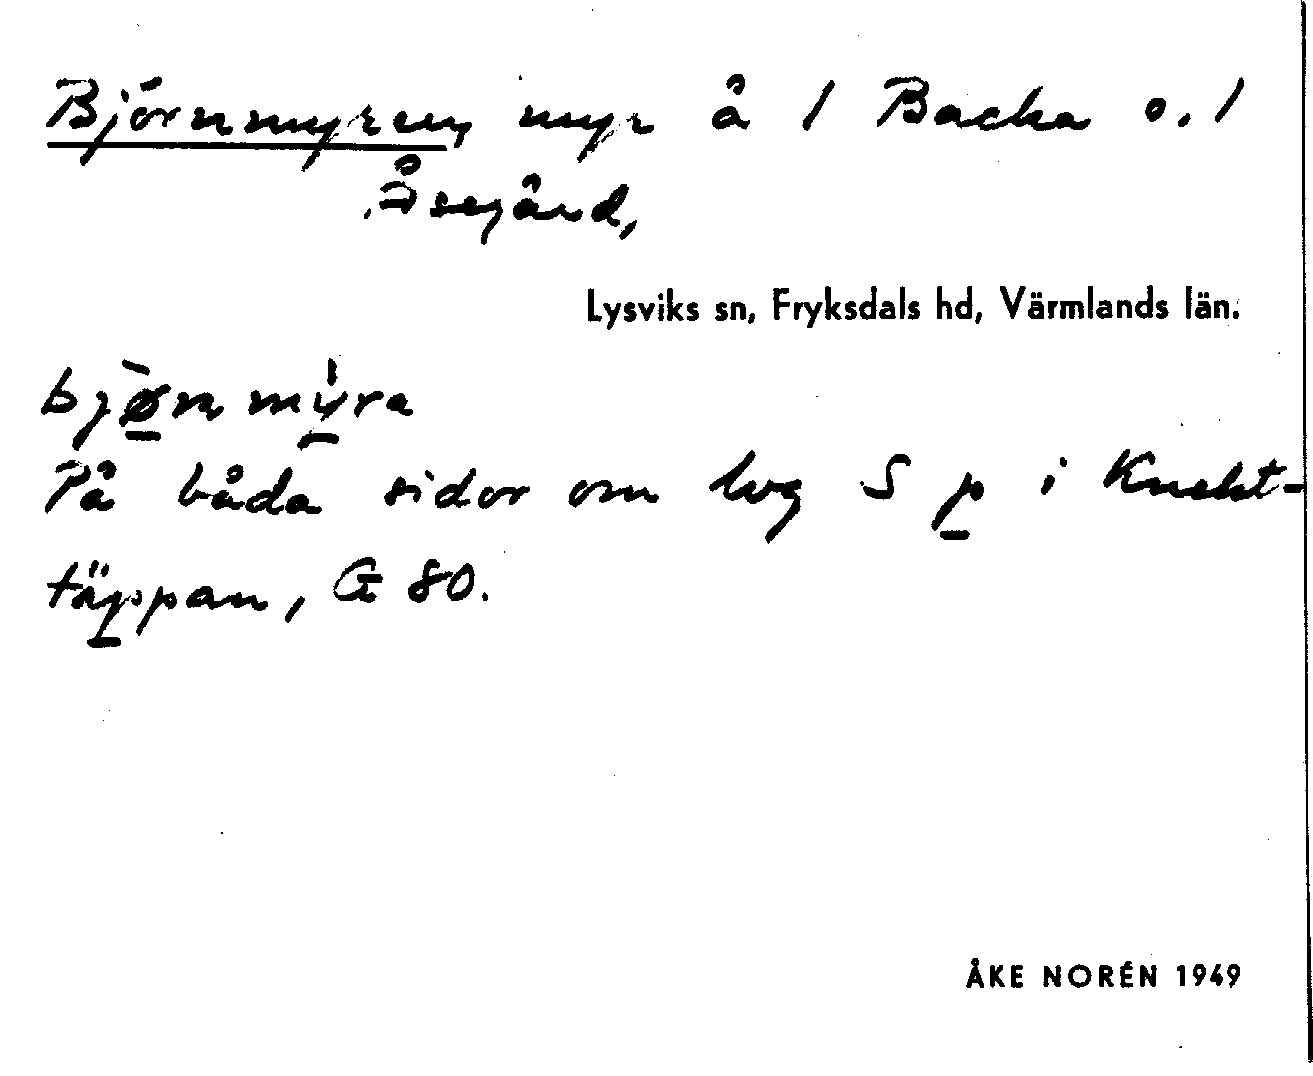 Björnmyren, myr å 1 Backa o. 1
Åsegård,
Lysviks sn, Fryksdals hd, Värmlands län.
bjø̀n mýra
På båda sidor om lvg S p i Knekt-
täppan, G 80.
ÅKE NORÉN 1949